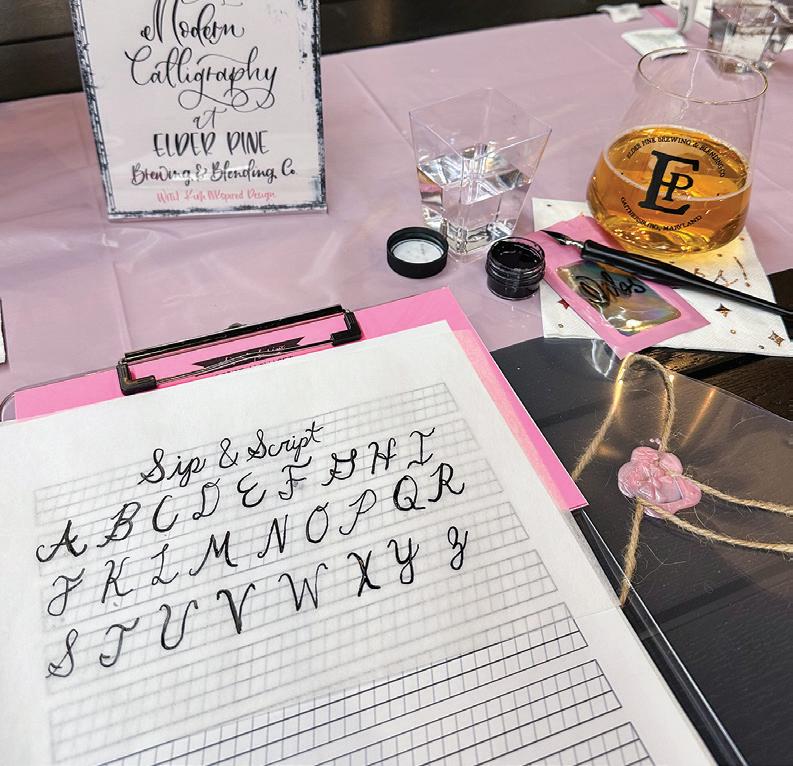 Modern
Calligraphy
at
ELDER PINE
Brewing & Blending Co.
ELDER PINE BREWING & BLENDING CO
EP
GAITHERSBURG, MARYLAND
Sip & Script
A B C D E F G H I
J K L M N O P Q R
S T U V W X Y Z